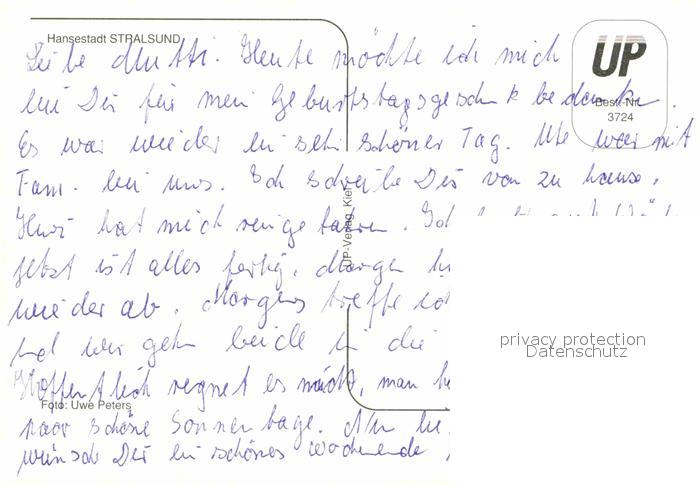 Hansestadt STRALSUND
UP
Best.-Nr.
3724
Liebe Mutti. Heute möchte ich mich
bei Dir für mein Geburtstagsgeschenk bedanken.
Es war wieder ein sehr schöner Tag. Ute war mit
Fam. bei uns. Ich schreibe Dir von zu hause.
hat mich reingefahren. Ich
jetzt ist alles fertig. Morgen
wieder ab. Morgens treffe ich
und wir gehn beide in die
Hoffentlich regnet es nicht, man
paar schöne Sonnentage. Nun
wünsch Dir ein schönes wochenende
UP-Verlag, Kiel
Foto: Uwe Peters
privacy protection
Datenschutz